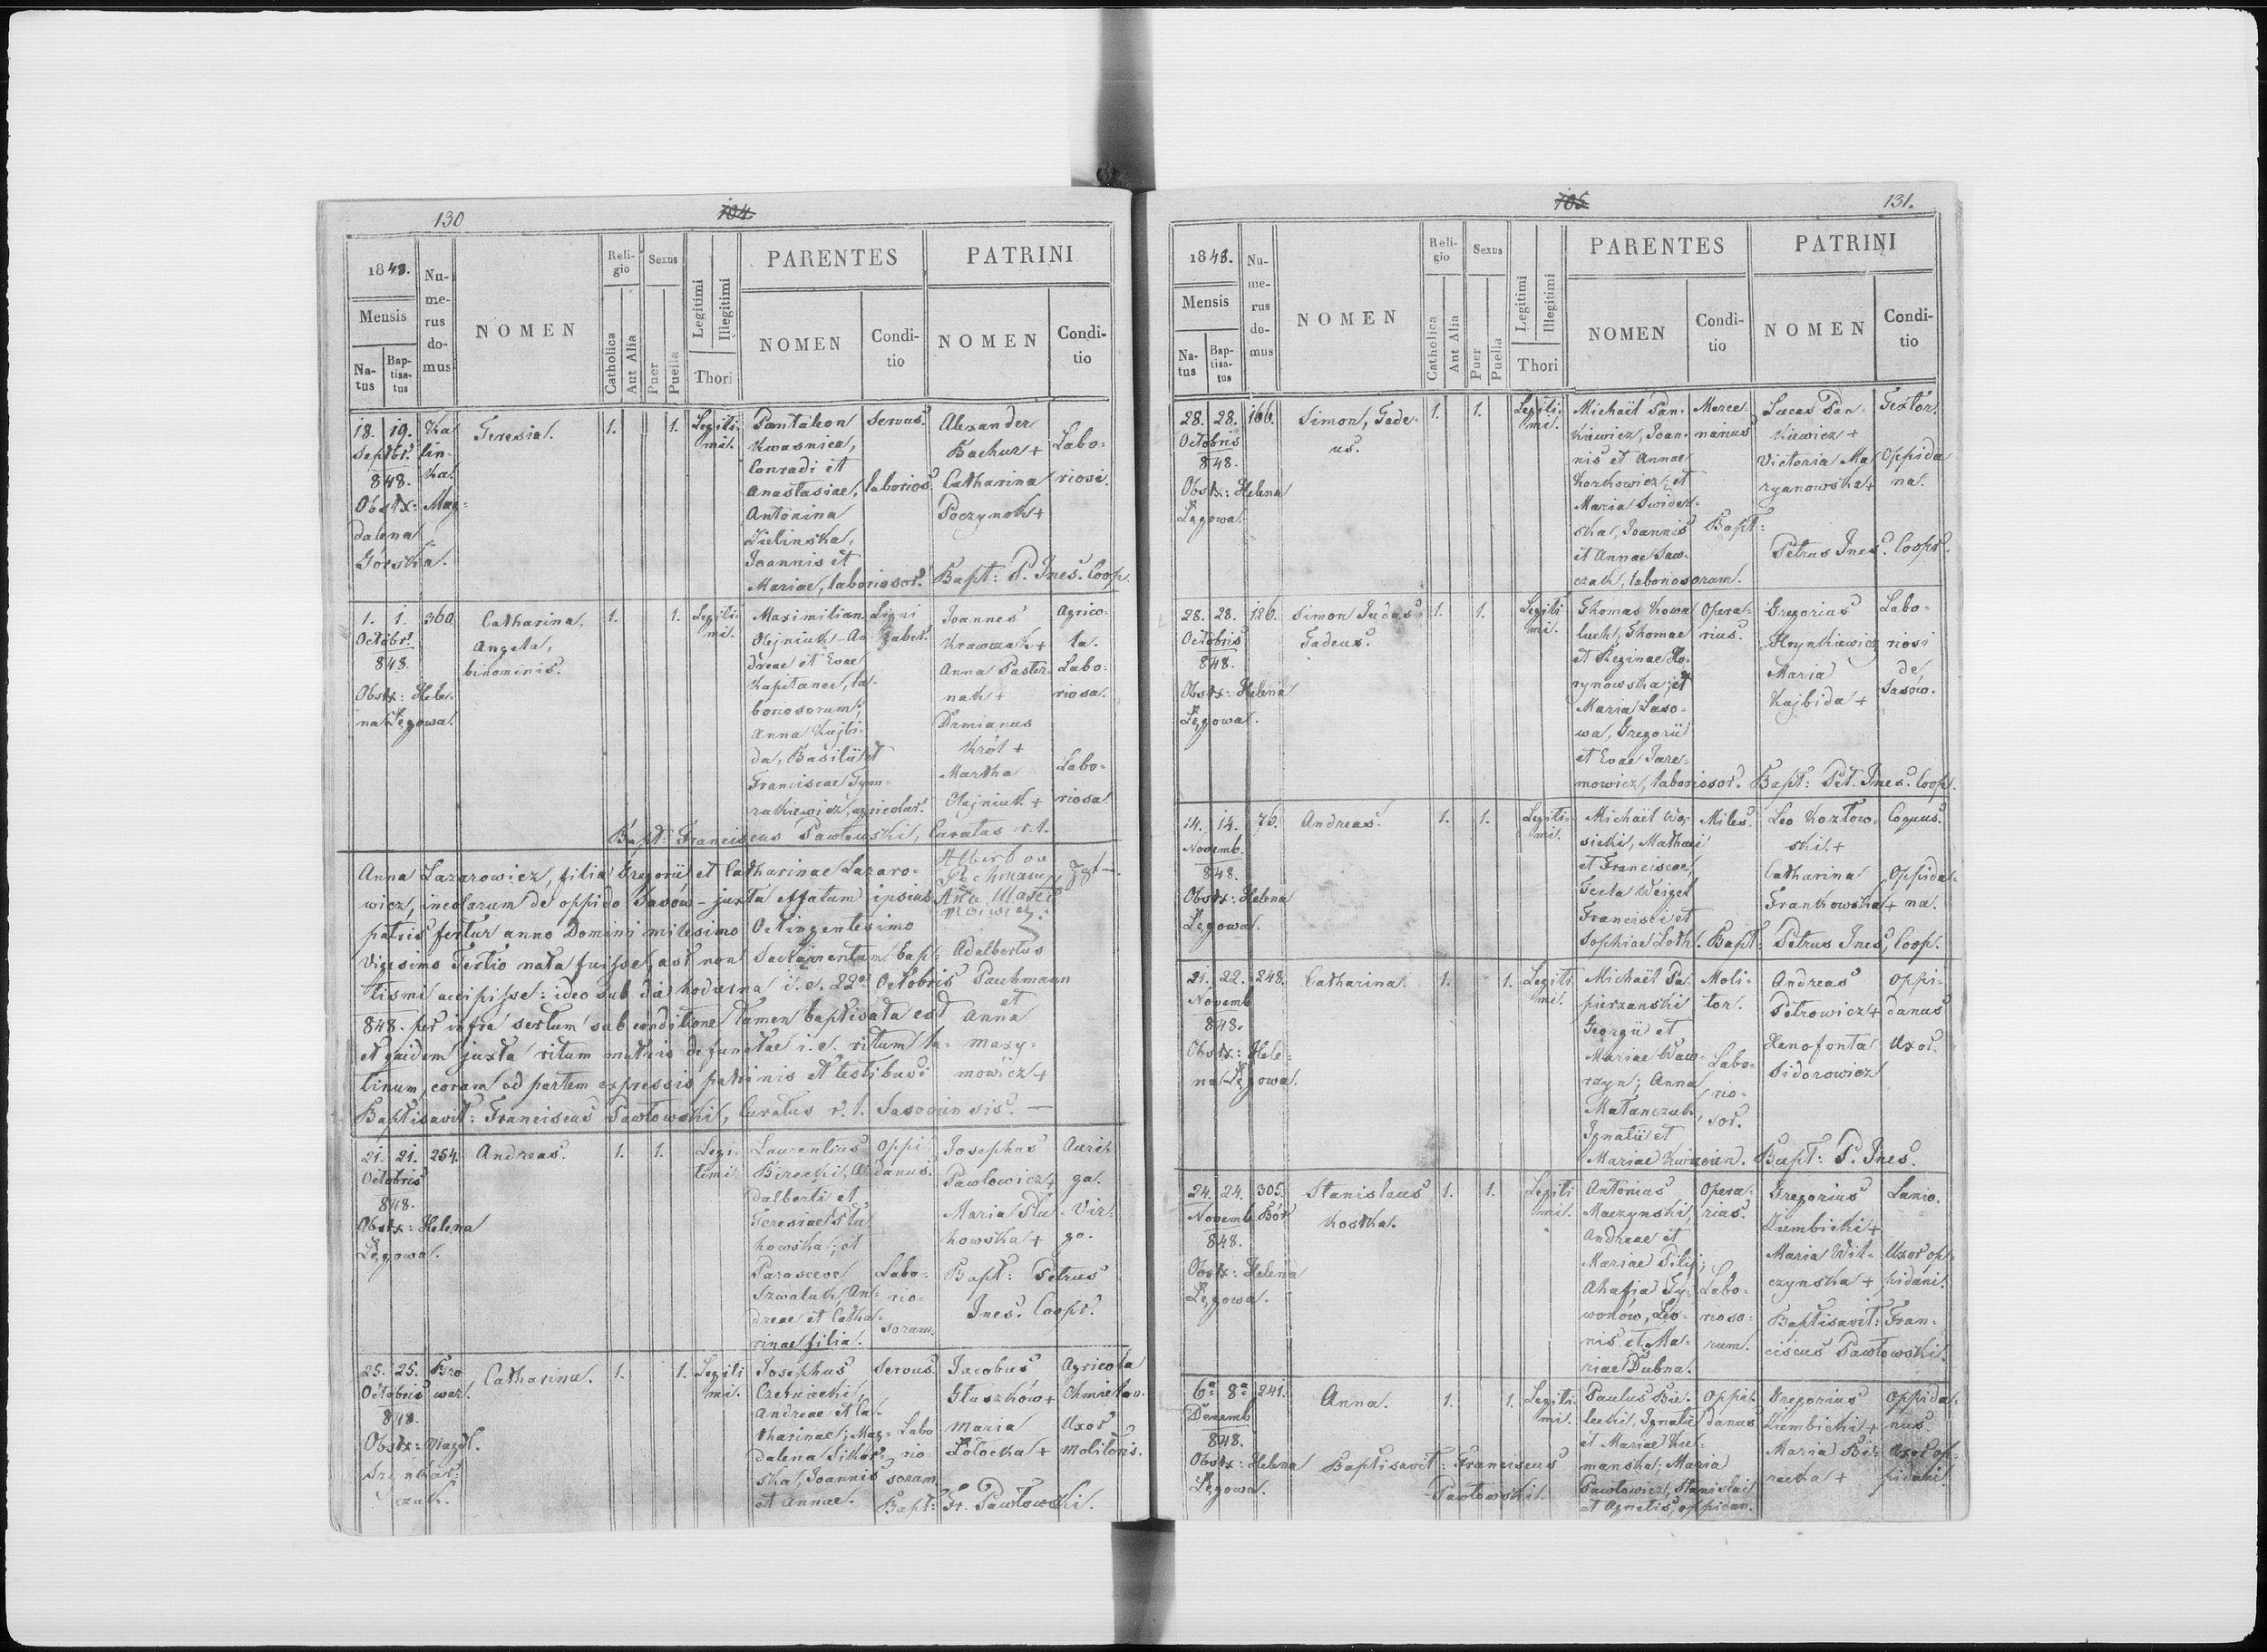 130
104.
1848.
Mensis
Na-
tus
Bap-
tisa-
tus
Nu-
me-
rus
do-
mus
NOMEN
Reli-
gio
Catholica
Aut Alia
Sexus
Puer
Puella
Legitimi
Illegitimi
Thori
PARENTES
NOMEN
Condi-
tio
PATRINI
NOMEN
Condi-
tio
18. 19.
Septbr.
848.
Obstx: Mag-
dalena
Górska.
Ka
lin-
ka.
Teresia.
1.
1.
Legiti-
mi.
Pantaleon
Kwasnica,
Conradi et
Anastasiae,
Antonina
Zielinska,
Joannis et
Mariae, laboriosor.
Servus.
laborios.
Alexander
Bachur +
Catharina
Poczynok +
Labo-
riosi.
Bapt: P. Ines. Coop.
1. 1. 360.
Octobr.
848.
Obstx: Hele-
na Lęgowa.
Catharina
Angela,
binominis.
1.
1.
Legiti-
mi.
Maximilian.
Olejniuk An-
dreae et Evae
Kapitanec, la-
boriosorum;
Anna Kajbi-
da, Basilii et
Franciscae Tym-
rakiewicz, agricolar.
Ligni
faber.
Joannes
Krawczuk +
Anna Paster-
nak +
Damianus
Król +
Martha
Olejniuk +
Agrico-
la.
Labo-
riosa.
Labo-
riosa.
Bapt: Franciscus Pawłowski, Curatus r. l.
Anna Lazarowicz, filia Gregorii et Catharinae Lazaro-
wicz, incolarum de oppido Sasów - juxta effatum ipsius
patris fertur anno Domini milesimo Octingentesimo
Vigesimo Tertio nata fuisse, ast non Sacramentum Bap-
tismi accepisse: ideo sub die hodierna i. e. 22a Octobris
848. per infra sertum sub conditione tamen baptisata est
et quidem juxta ritum matris defunctae i. e. ritum la-
tinum, coram ad partem expressis patrinis et testibus:
Baptisavit: Franciscus Pawłowski, Curatus r. l. Sasoviensis. —
Adalbertus
Pachmann
et
Anna
maxy-
mowicz +
21. 21. 254.
Octobris
848.
Obstx: Helena
Lęgowa.
Andreas.
1.
1.
Legi-
timi
Laurentius
Birecki, A-
dalberti et
Teresiae Słu-
kowska; et
Parasceve
Szwaluk, An-
dreae et Catha-
rinae filia.
Oppi
danus.
Labo-
rio-
sorum.
Josephus
Pawłowicz +
Maria Słu-
kowska +
Auri-
ga.
Vir-
go.
Bapt: Petrus
Ines. Coopr.
25. 25.
Octobris
848.
Obstx: Magdl.
Bro
war.
Catharina.
1.
1.
Legiti
mi.
Josephus
Czernicki,
Andreae et Ca-
tharinae; Mag-
dalena Sikor-
ska, Joannis
et Annae.
Servus.
Labo
rio-
sorum
Jacobus
Głuszków +
Maria
Łotocka +
Agricola
Chmielów.
Uxor
Molitoris.
Bapt: Fr. Pawłowski.
105
131.
1848.
Mensis
Na-
tus
Bap-
tisa-
tus
Nu-
me-
rus
do-
mus
NOMEN
Reli-
gio
Catholica
Aut Alia
Sexus
Puer
Puella
Legitimi
Illegitimi
Thori
PARENTES
NOMEN
Condi-
tio
PATRINI
NOMEN
Condi-
tio
28. 28. 166.
Octobris
848.
Obstx: Helena
Lęgowa.
Simon, Tade-
us.
1.
1.
Legiti-
mi.
Michaël Pan-
kiewicz, Joan-
nis et Annae
Korkowicz; et
Maria Swider-
ska, Joannis
et Annae Saw-
czak, laboriosorum.
Merce-
narius
Lucas Pan-
kiewicz +
Victoria Ma-
ryanowska +
Textor.
Oppida
na.
Bapt:
Petrus Ines. Coopr.
28. 28. 126.
Octobris
848.
Obstx: Helena
Lęgowa.
Simon Judas
Tadeus.
1.
1.
Legiti
mi.
Thomas Kowa
luch, Thomae
et Reginae Ho-
rynowska; et
Maria Laso-
wa, Gregorii
et Evae Jare-
mowicz, laboriosor.
Opera-
rius.
Gregorius
Hrynkiewicz
Maria
Kajbida +
Labo-
riosi
de
Sasów.
Bapt: Pet. Ines. Coop.
14. 14. 76.
Novemb.
848.
Obstx: Helena
Lęgowa.
Andreas.
1.
1.
Legiti-
mi.
Michaël Wo-
sicki, Mathaei
et Franciscae,
Tecla Weigel
Francisci et
Sophiae Loth.
Miles.
Leo Kozłow-
ski +
Catharina
Frankowska +
Coquus.
Oppida-
na.
Bapt: Petrus Ines, Coop.
21. 22. 248.
Novemb
848.
Obstx: Hele-
na Lęgowa.
Catharina.
1.
1.
Legiti
mi.
Michaël Pa-
pierzanski
Georgii et
Mariae Waw-
rzyn; Anna
Matanczuk,
Ignatii et
Moli-
tor.
Labo-
rio-
sor.
Andreas
Petrowicz +
Xenofonta
Sidorowicz
Oppi-
danus
Uxor.
Bapt: P. Ines.
24. 24. 305.
Novemb Bór
848.
Obstx: Helena
Lęgowa.
Stanislaus
Kostka.
1.
1.
Legiti
mi.
Antonius
Maczynski,
Andreae et
Mariae Pilip;
Ahafia Ty-
wonów, Leo-
nis et Ma-
riae Dubna.
Opera-
rius.
Labo-
rioso-
rum.
Gregorius
Dumbicki +
Maria Wil-
czynska +
Lanio.
Uxor op-
pidani.
Baptisavit: Fran-
ciscus Pawłowski.
6a 8a 241.
Decemb
848.
Obstx: Helena
Lęgowa.
Anna.
1.
1.
Legiti-
mi.
Paulus Bie-
lecki, Ignatii
et Mariae Ku-
manska; Maria
Pawłowicz, Stanislai
et Agnetis, oppidan.
Oppi-
danus
Gregorius
Dumbicki +
Maria Bi-
recka +
Oppida-
nus
Uxor op-
pidani
Baptisavit: Franciscus
Pawłowski.